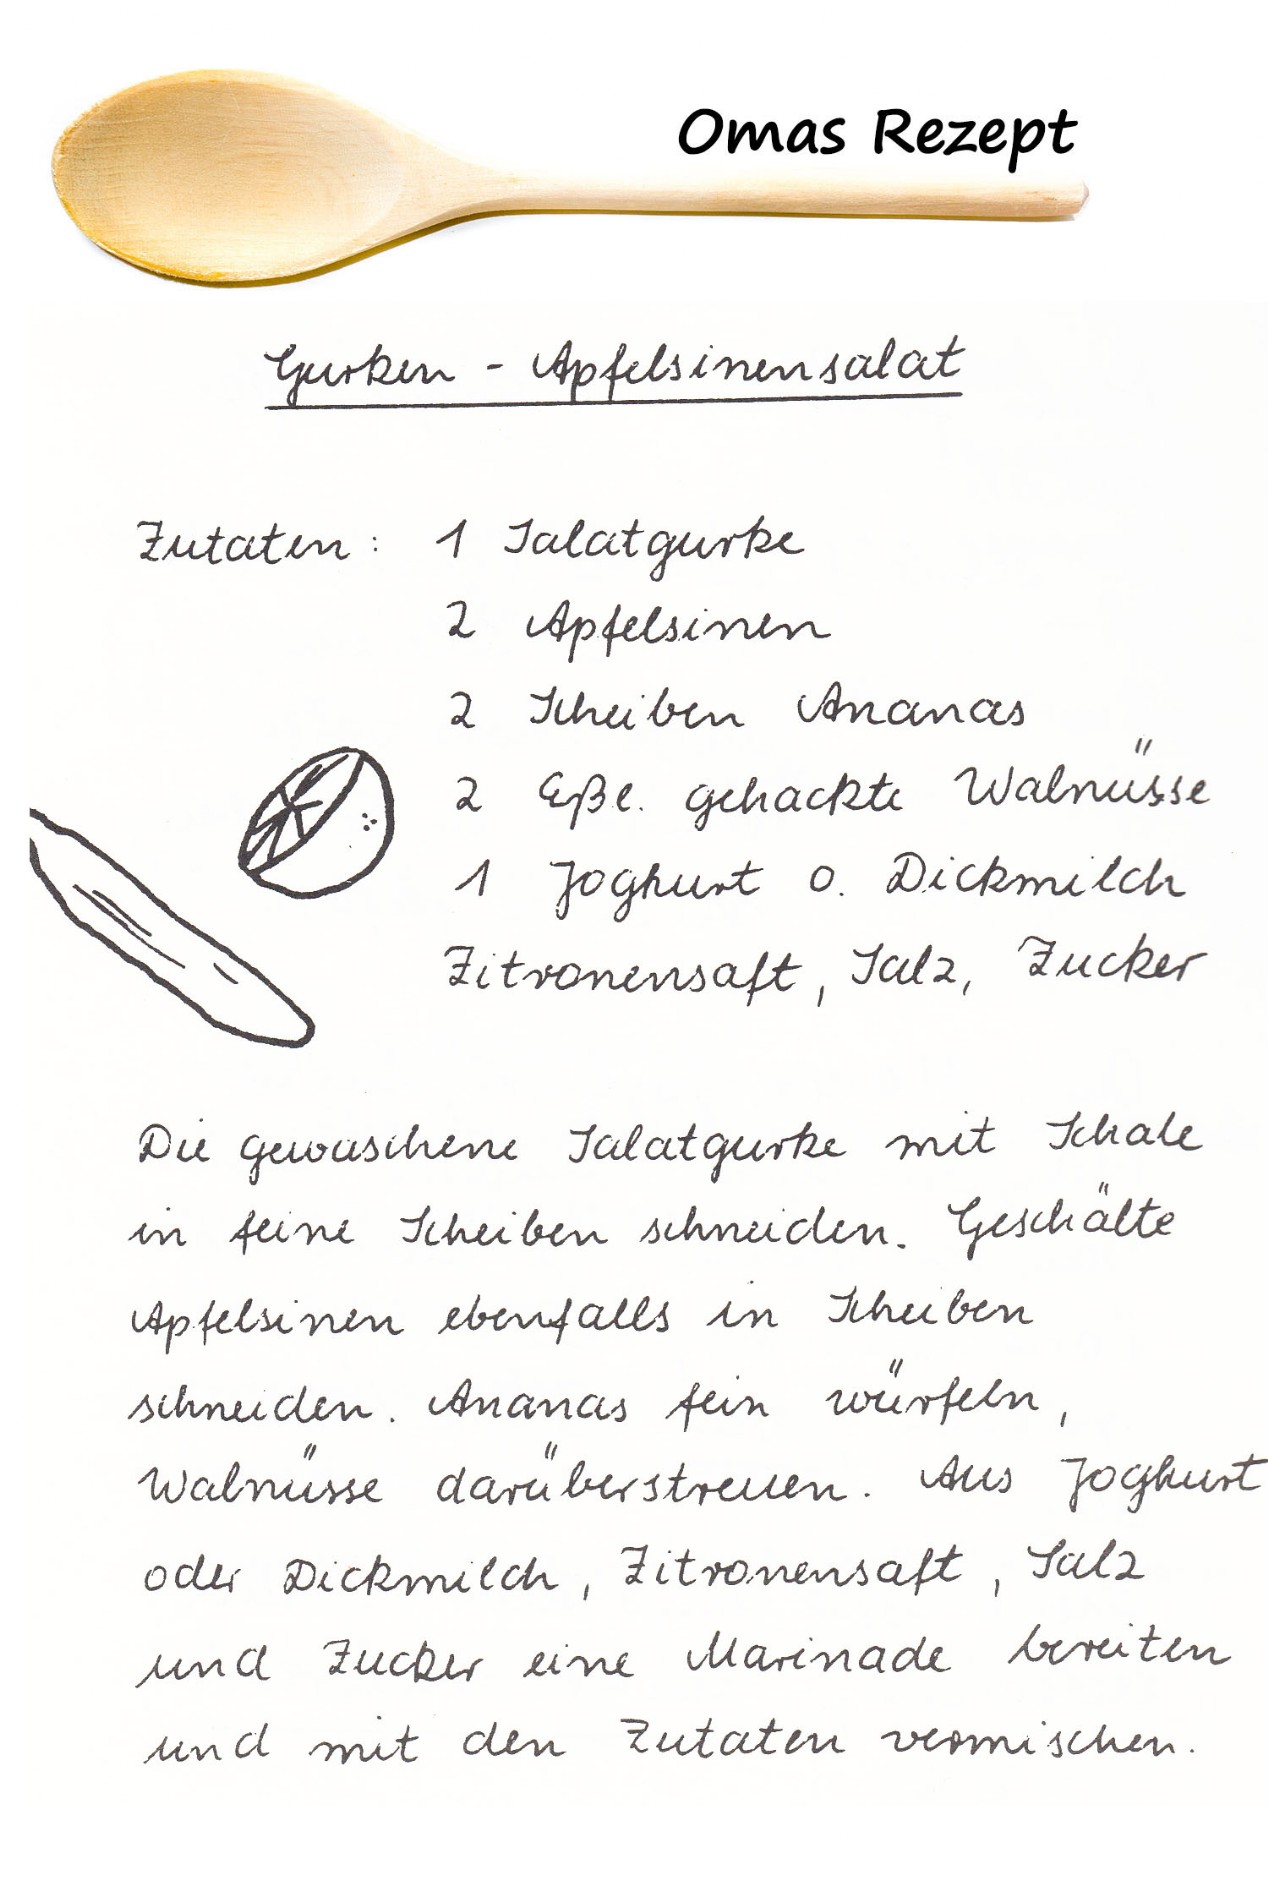 Omas Rezept
Gurken - Apfelsinensalat
Zutaten: 1 Salatgurke
2 Apfelsinen
2 Scheiben Ananas
2 Eßl. gehackte Walnüsse
1 Joghurt o. Dickmilch
Zitronensaft, Salz, Zucker
Die gewaschene Salatgurke mit Schale
in feine Scheiben schneiden. Geschälte
Apfelsinen ebenfalls in Scheiben
schneiden. Ananas fein würfeln,
Walnüsse darüberstreuen. Aus Joghurt
oder Dickmilch, Zitronensaft, Salz
und Zucker eine Marinade bereiten
und mit den Zutaten vermischen.